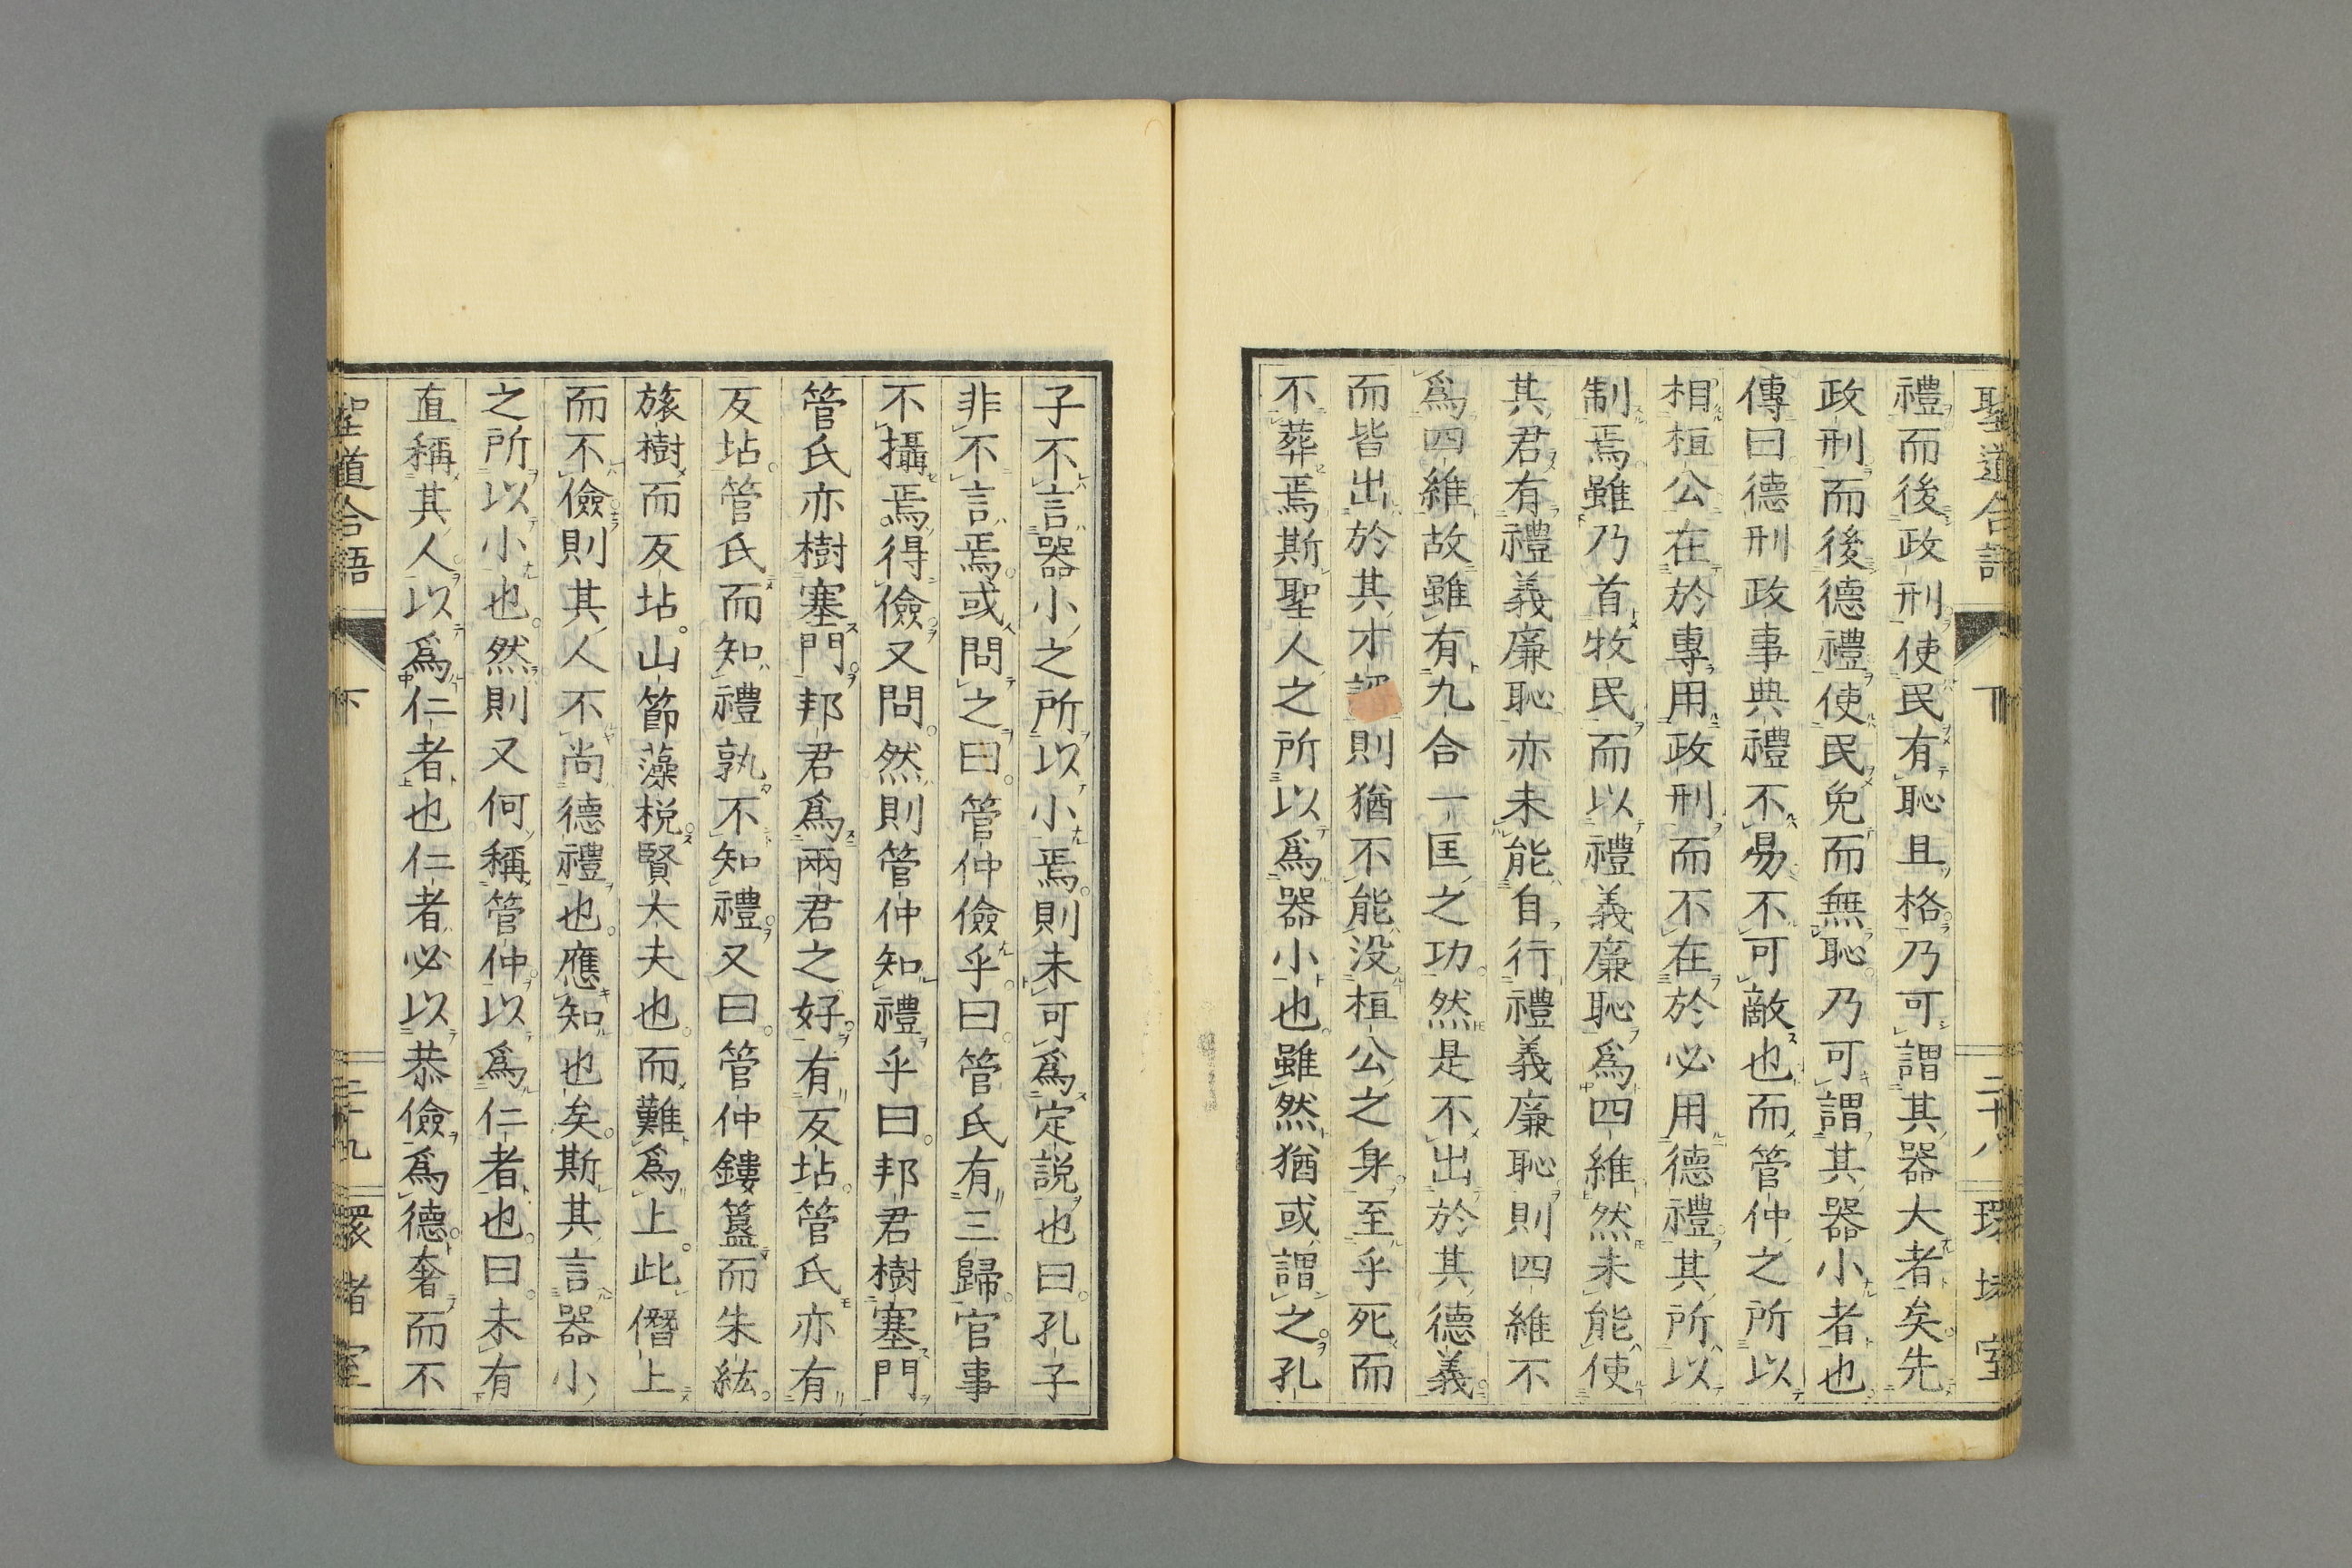 聖道合語 下 二十八 環堵室
禮而後政刑使民有恥且格乃可謂其器大者矣先
政刑而後德禮使民免而無恥乃可謂其器小者也
傳曰德刑政事典禮不易不可敵也而管仲之所以
相桓公在於專用政刑而不在於必用德禮其所以
制焉雖乃首牧民而以禮義廉恥爲四維然未能使
其君有禮義廉恥亦未能自行禮義廉恥則四維不
爲四維故雖有九合一匡之功然是不出於其德義
而皆出於其才則猶不能没桓公之身至乎死而
不葬焉斯聖人之所以爲器小也雖然猶或謂之孔
子不言器小之所以小焉則未可爲定説也曰孔子
非不言焉或問之曰管仲儉乎曰管氏有三歸官事
不攝焉得儉又問然則管仲知禮乎曰邦君樹塞門
管氏亦樹塞門邦君爲兩君之好有反坫管氏亦有
反坫管氏而知禮孰不知禮又曰管仲鏤簋而朱紘
旅樹而反坫山節藻梲賢大夫也而難爲上此僭上
而不儉則其人不尚德禮也應知也矣斯其言器小
之所以小也然則又何稱管仲以爲仁者也曰未有
直稱其人以爲仁者也仁者必以恭儉爲德奢而不
聖道合語 下 二十九 環堵室